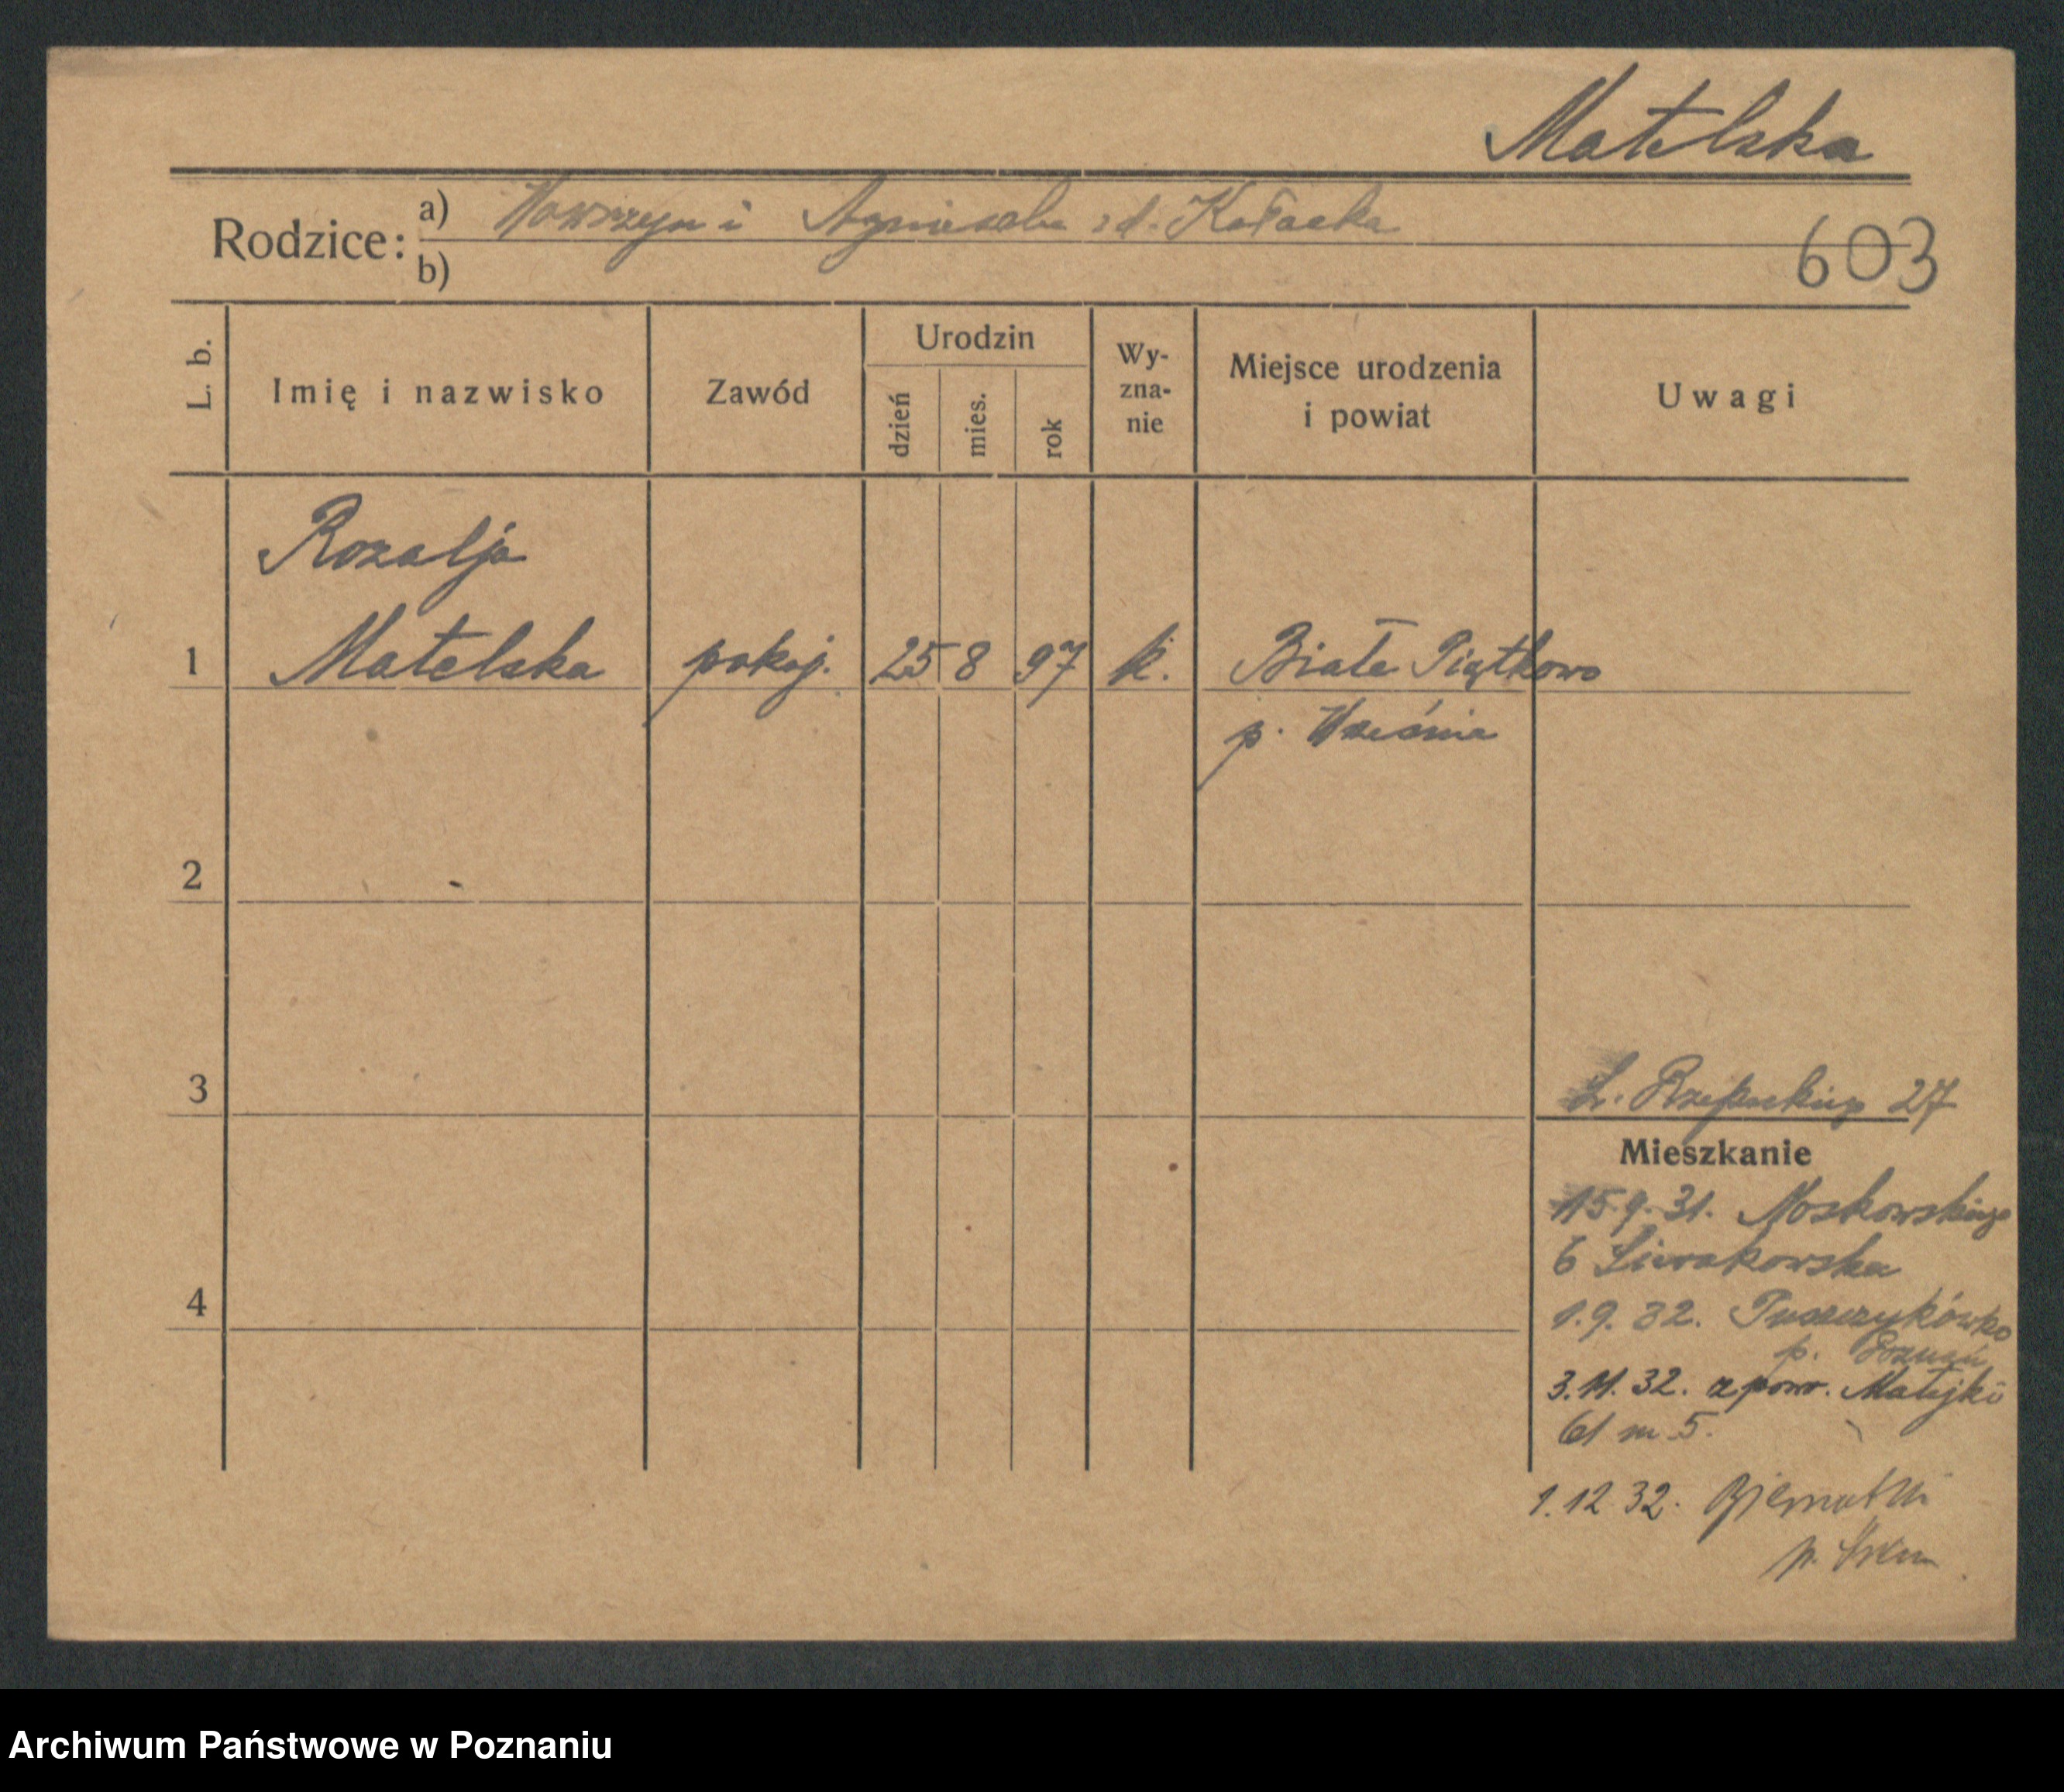 Matelska
Rodzice: a) Wawrzyn i Agnieszka zd. Kołacka
b)
603
L. b. Imię i nazwisko Zawód Urodzin dzień mies. rok Wy-zna-nie Miejsce urodzenia i powiat Uwagi
Rozalja
1 Matelska pokoj. 25 8 97 k. Białe Piątkowo
p. Września
2
3
27
Mieszkanie
15.9.31. Noskowskiego
6 Sierakowska
4
1.9.32. Puszczykówko
p. Poznań
3.11.32. z powr. Matejki
61 m 5.
1.12 32. Biernatki
p. Śrem
Archiwum Państwowe w Poznaniu